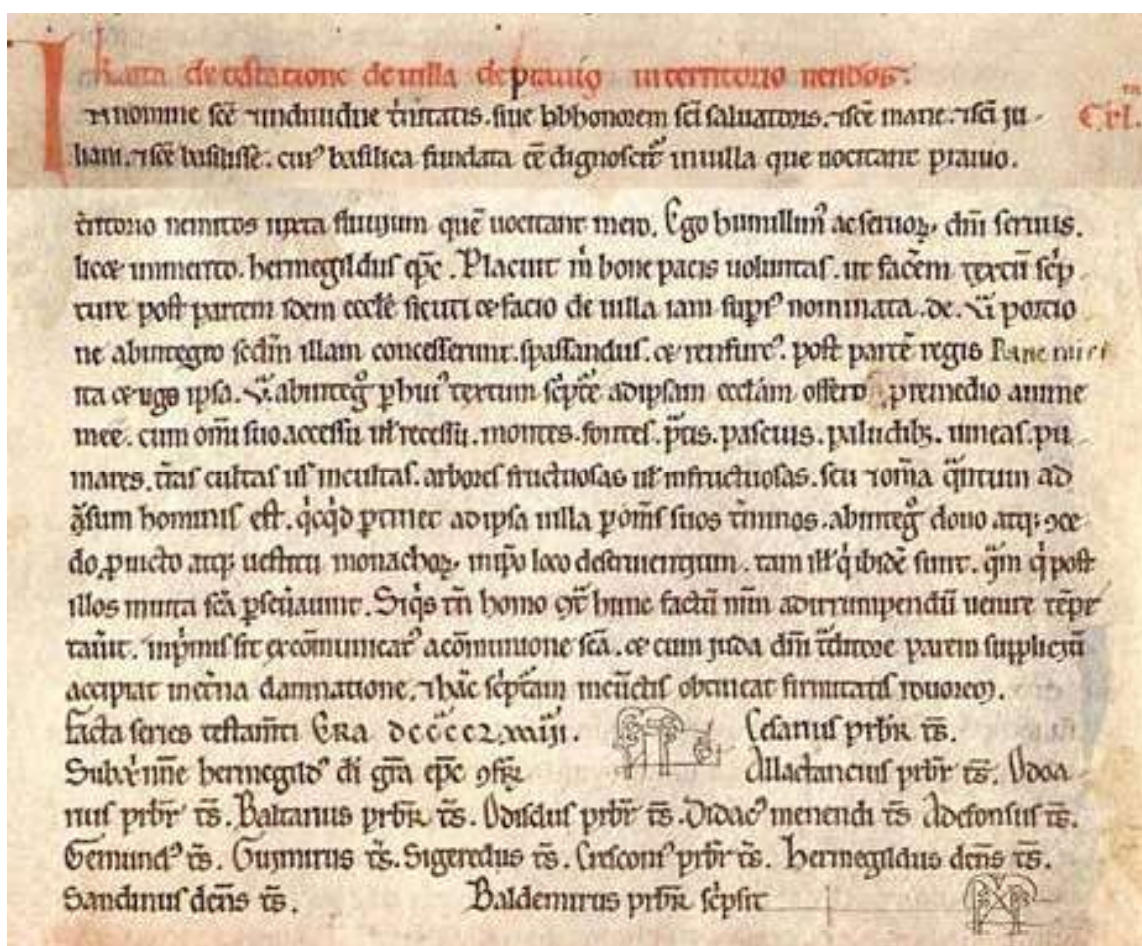 Karta de testatione de uilla de prauio in territorio nendos.
In nomine scē ⁊ indiuidue t̄nitatis. siue hbhonorem sc̄i saluatoris. ⁊scē marie. ⁊sc̄i ju
liani. ⁊scē basilisse. cui⁹ basilica fundata cē dignoscit̄ inuilla que uocitant prauio.
t̄ritorio nemitos iuxta fluuium quē uocitant mero. Ego humillim⁹ ac seruoꝝ dn̄i seruus.
licet inmerito. hermegildus ep̄c. Placuit m̄ bone pacis uoluntas. ut facerem textū sc̄p
ture post partem idem eccl̄e sicuti et facio de uilla iam sup̄⁹ nominata. de. portio
ne abintegro scdm̄ illam concesserunt. spassandus. et post partē regis Ranemiri
ita et ego ipsa. abinteg̊ p̱hui⁹ textum sc̄pt̄e adipsam eccl̄am offero premedio anime
mee. cum om̄i suo accessū ul̄ recessū. montes. fontes. p̄tis. pascuis. paludib;. uineas. pu
mares. t̄ras cultas ul̄ incultas. arbores fructuosas ul̄ infructuosas. seu ⁊om̄a q̄ntum ad
hominis est. q̇cq̇d p̱tinet adipsa uilla p̱ om̄s suos t̄minos. abinteg̊ dono atq; ꝯce
do, p̱uicto atq; uestitu monachoꝝ. inip̄o loco deseruientium. tam ill̄ q̇ ibidē sunt. q̄m q̇ post
illos in uita sc̄a p̱seuauerint. Siq̇s tn̄ homo ꝯt̄ hunc factū nr̄m adirrumpendū uenire tēpt
tau̅it. inp̄mis sit excōmunicat⁹ acōmunione sc̄a. et cum juda dn̄i t̄ditore parem suppliciū
accipiat inet̄na damnatione. ⁊hāc sc̄pt̄am incūctis obtineat firmitatis roborem.
facta series testam̄ti ERA
Cesarius prb̄r t̄s.
Sub hermegild⁹ dī gr̄a ep̄c ꝯfr̄
Allactancius prb̄r t̄s. Odoa
rius prb̄r t̄s. Baltarius prb̄r t̄s. Odisclus prb̄r t̄s. Didac⁹ menendi t̄s Adefonsus t̄s.
Gemund⁹ t̄s. Guymirus t̄s. Sigeredus t̄s. Crescon⁹ prb̄r t̄s. Hermegildus dcn̄s t̄s.
Sandinus dcn̄s t̄s.
Baldemirus prb̄r sc̄psit